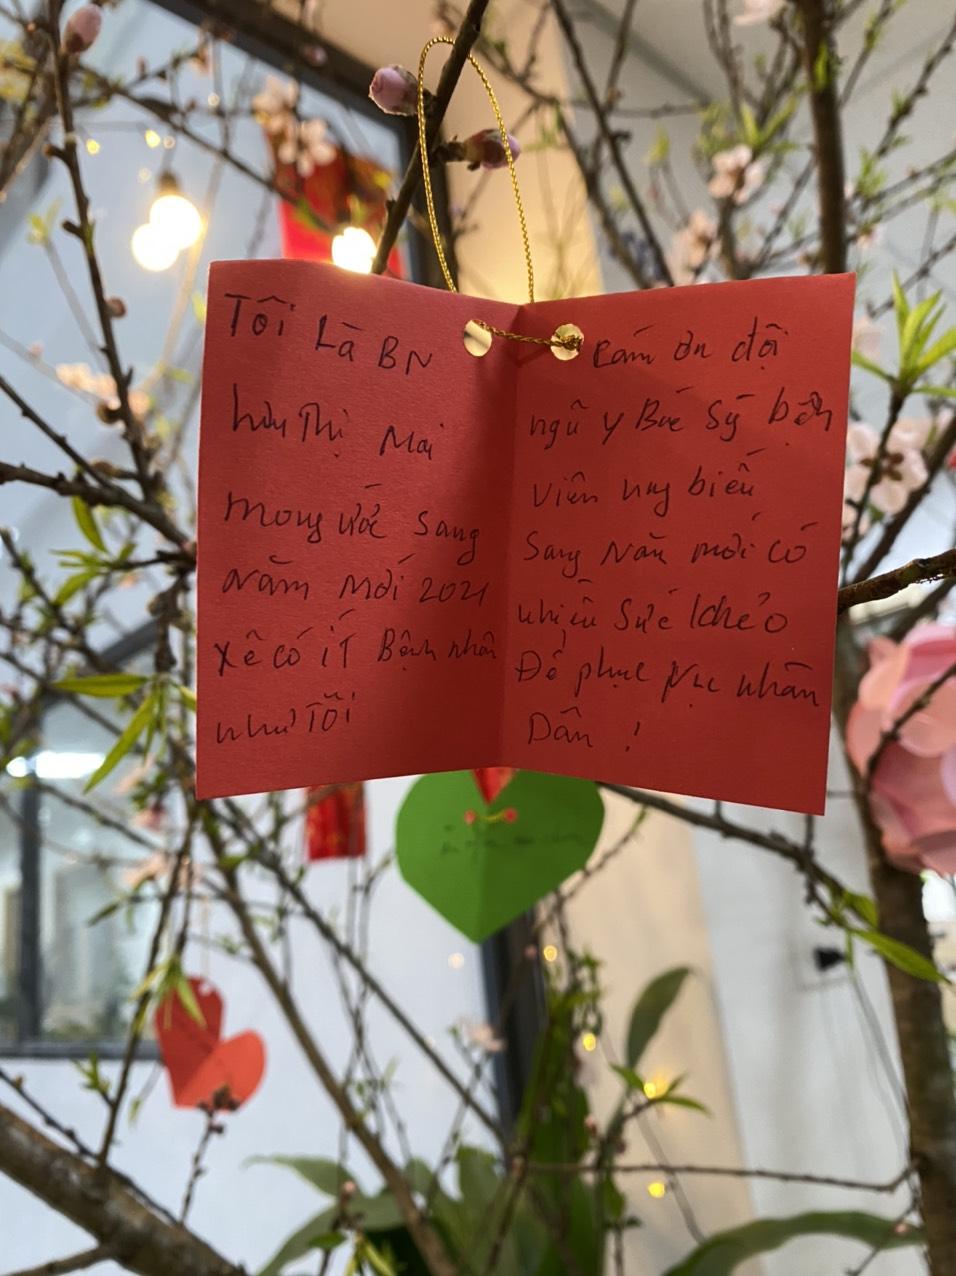 Tôi Là BN
Thị Mai
mong ước sang
năm mới 2021
xẽ có ít Bệnh nhân
như Tôĩ
cám ơn đội
ngũ y Bác Sỹ bệnh
viên
Sang Năm mới có
nhiều Sức khẻo
Để phục vục nhân
Dân !